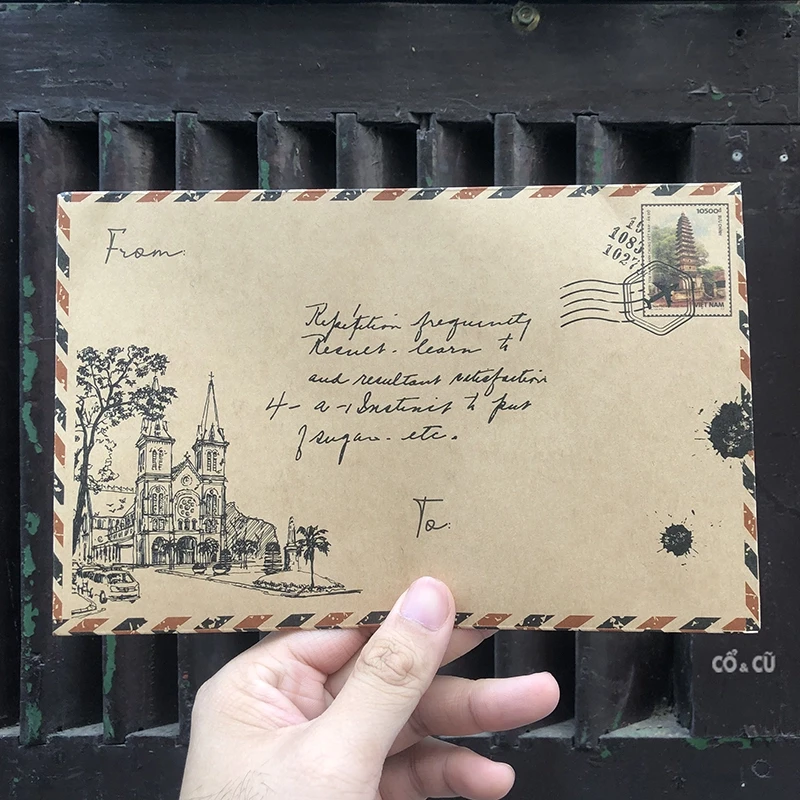 From:
10500đ
VIỆT NAM
1083
1027
Repetition frequently
Result - learn to
and resultant satisfaction
4 - a - Instinct to put
sugar - etc.
To:
CỔ & CŨ